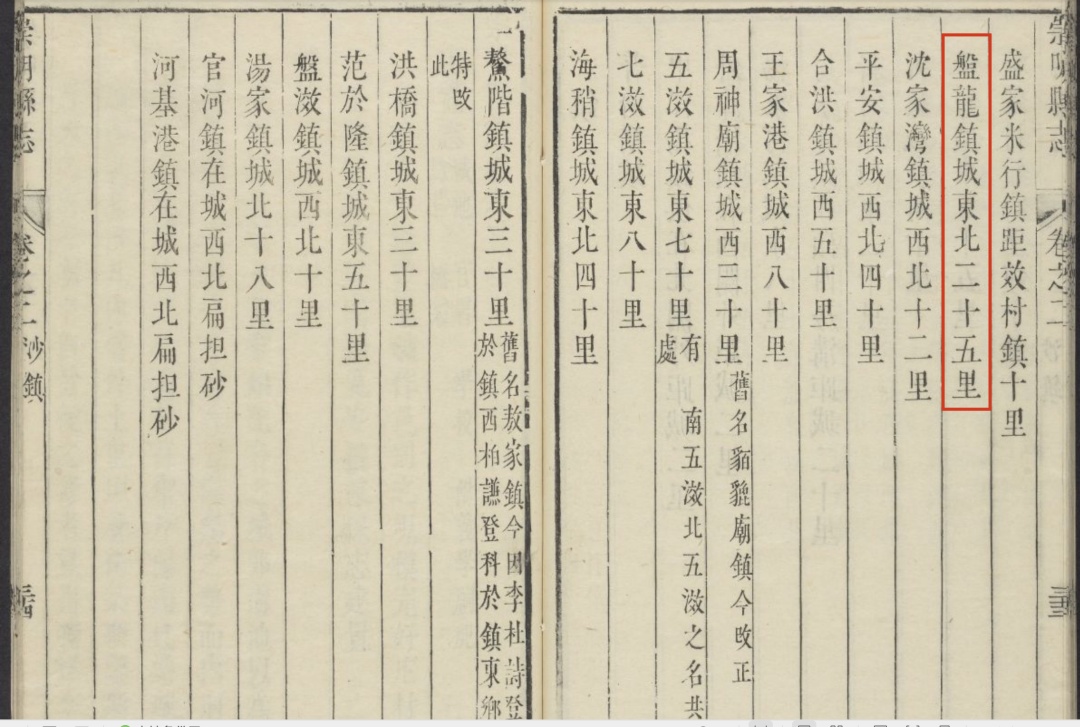 崇明縣志
卷之二
三
盛家米行鎮距效村鎮十里
盤龍鎮城東北二十五里
沈家灣鎮城西北十二里
平安鎮城西北四十里
合洪鎮城西五十里
王家港鎮城西八十里
周神廟鎮城西三十里舊名貊貔廟鎮今改正
五滧鎮城東七十里有南五滧北五滧之名共
處
七滧鎮城東八十里
海稍鎮城東北四十里
鰲階鎮城東三十里舊名敖家鎮今因李杜詩登
於鎮西柏謙登科於鎮東鄉
特改
此
洪橋鎮城東三十里
范於隆鎮城東五十里
盤滧鎮城西北十里
湯家鎮城北十八里
官河鎮在城西北扁担砂
河基港鎮在城西北扁担砂
崇明縣志
卷之二
沙鎮